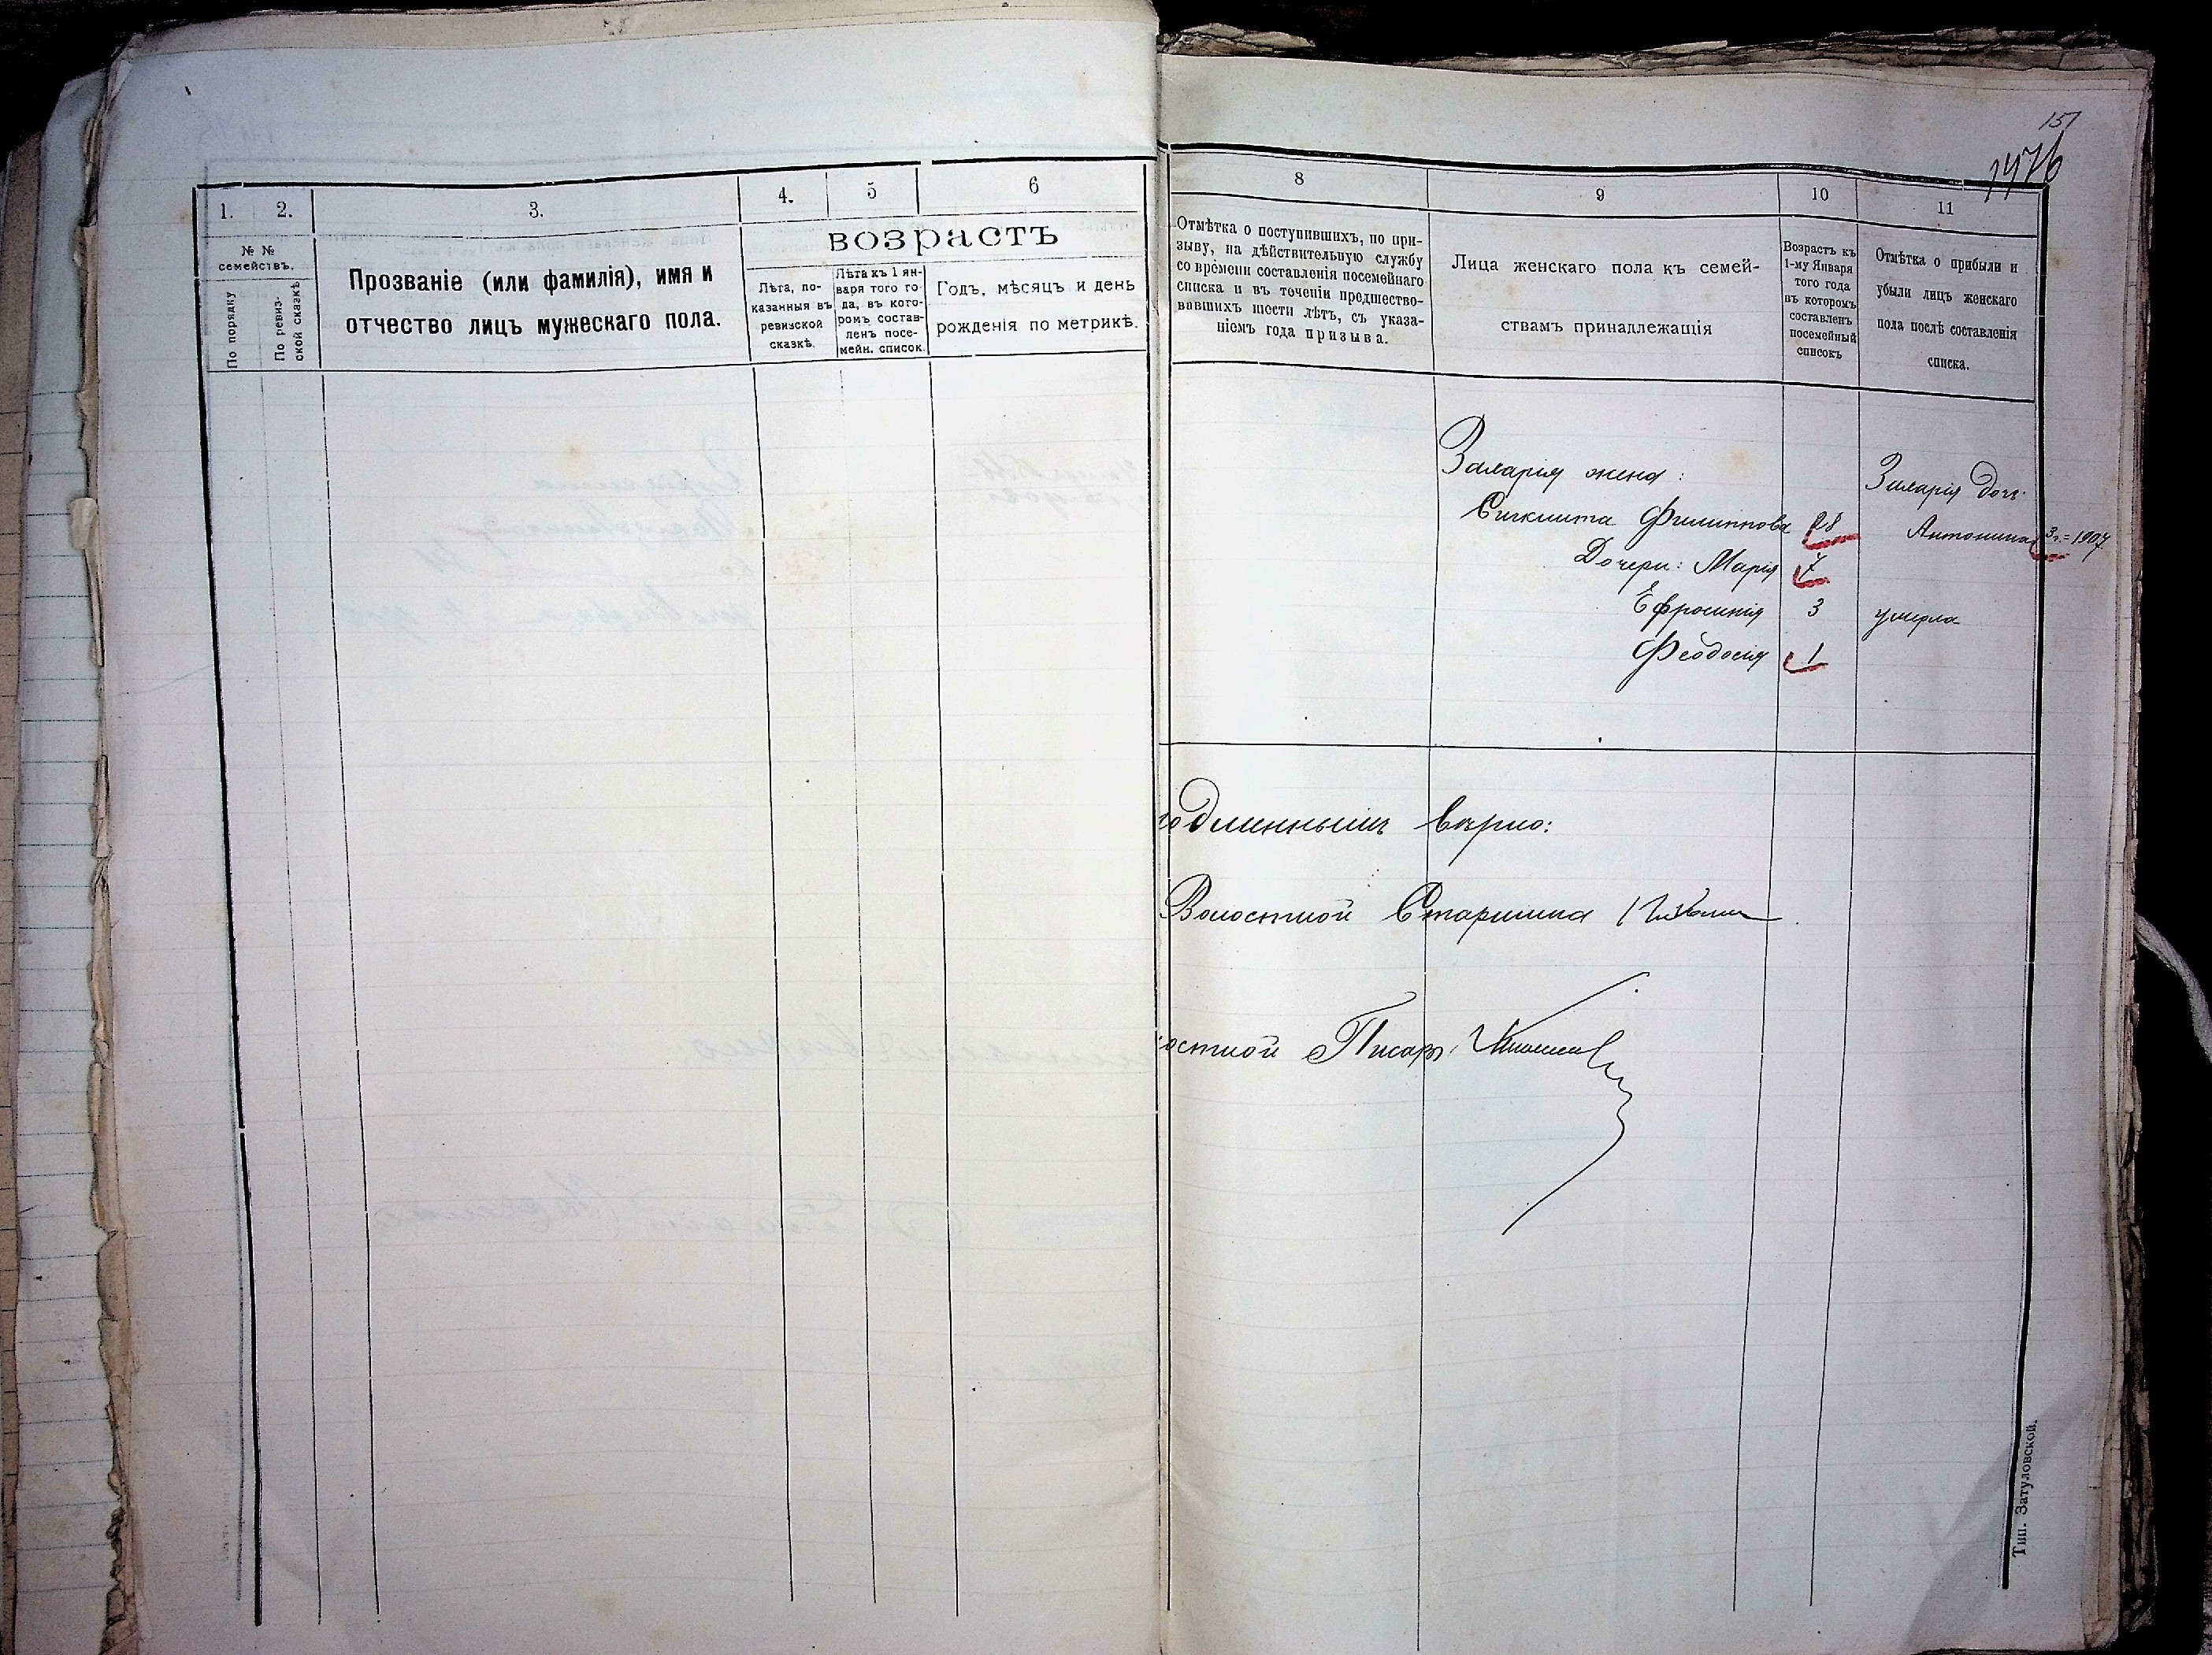 151
1476
1.
2.
3.
4.
5
6
№ №
семействъ.
По порядку
По ревиз-
ской сказкѣ
Прозваніе (или фамилія), имя и
отчество лицъ мужескаго пола.
ВОЗРАСТЪ
Лѣта, по-
казанныя въ
ревизской
сказкѣ.
Лѣта къ 1 ян-
варя того го-
да, въ кото-
ромъ состав-
ленъ посе-
мейн. список.
Годъ, мѣсяцъ и день
рожденія по метрикѣ.
8
9
10
11
Отмѣтка о поступившихъ, по при-
зыву, на дѣйствительную службу
со времени составленія посемейнаго
списка и въ теченіи предшество-
вавшихъ шести лѣтъ, съ указа-
ніемъ года призыва.
Лица женскаго пола къ семей-
ствамъ принадлежащія
Возрастъ къ
1-му Января
того года
въ которомъ
составленъ
посемейный
списокъ
Отмѣтка о прибыли и
убыли лицъ женскаго
пола послѣ составленія
списка.
Іиларія жена:
Филиппова 28
Дочери: Марія 7
Ефросинія 3
Феодосія 1
Іиларія дочь
Антонина 3 г. = 1907
умерла
одлиннымъ вѣрно:
Волостной Старшина
остной Писарь
Тип. Затуловской.